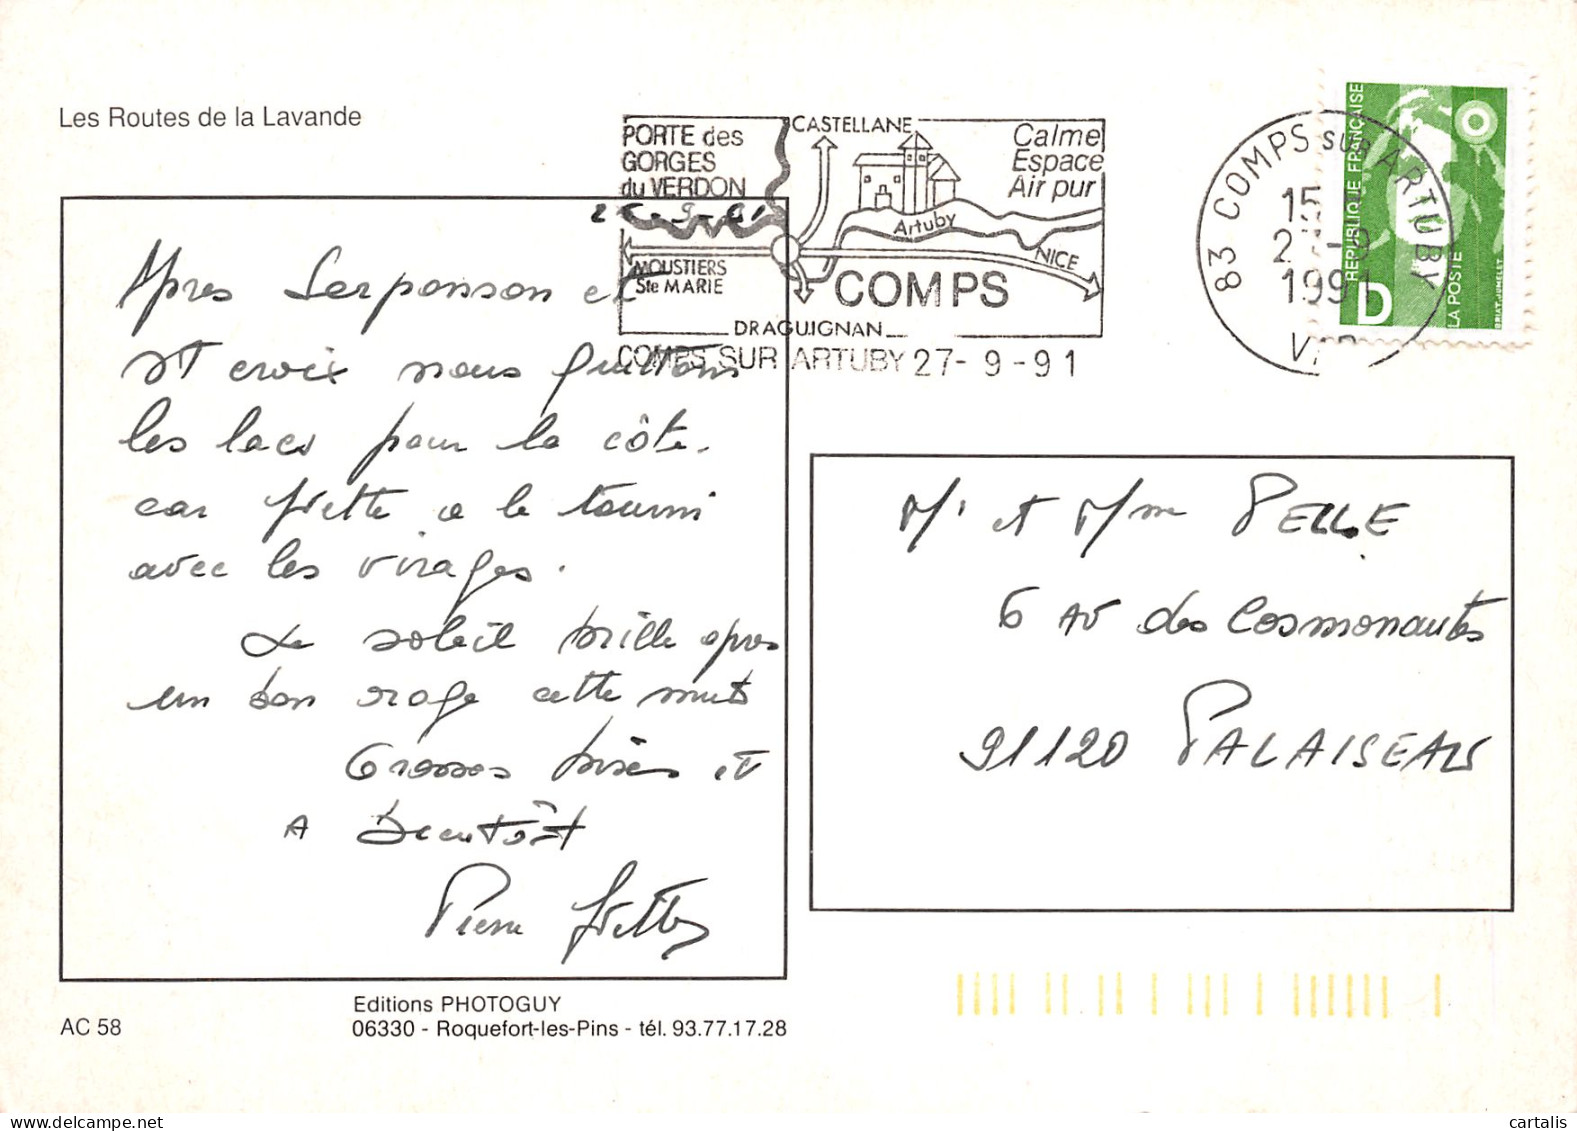 Les Routes de la Lavande
PORTE des
GORGES
du VERDON
CASTELLANE
Calme
Espace
Air pur
Artuby
NICE
MOUSTIERS
Ste MARIE
COMPS
DRAGUIGNAN
COMPS SUR ARTUBY 27-9-91
83 COMPS SUR ARTUBY
15
2 -9
1991
VAR
RÉPUBLIQUE FRANÇAISE
D
LA POSTE
BRIAT-JUMELET
Apres Serponson et
st croix nous quittons
les lacs pour la côte.
car Yvette a le tourni
avec les virages.
Le soleil brille apres
un bon orage cette nuit
Grosses bises et
A bientôt
Pierre Yvette
Mr et Mme PELLE
6 AV des Cosmonautes
91120 PALAISEAU
Editions PHOTOGUY
AC 58
06330 - Roquefort-les-Pins - tél. 93.77.17.28
www.delcampe.net
cartalis